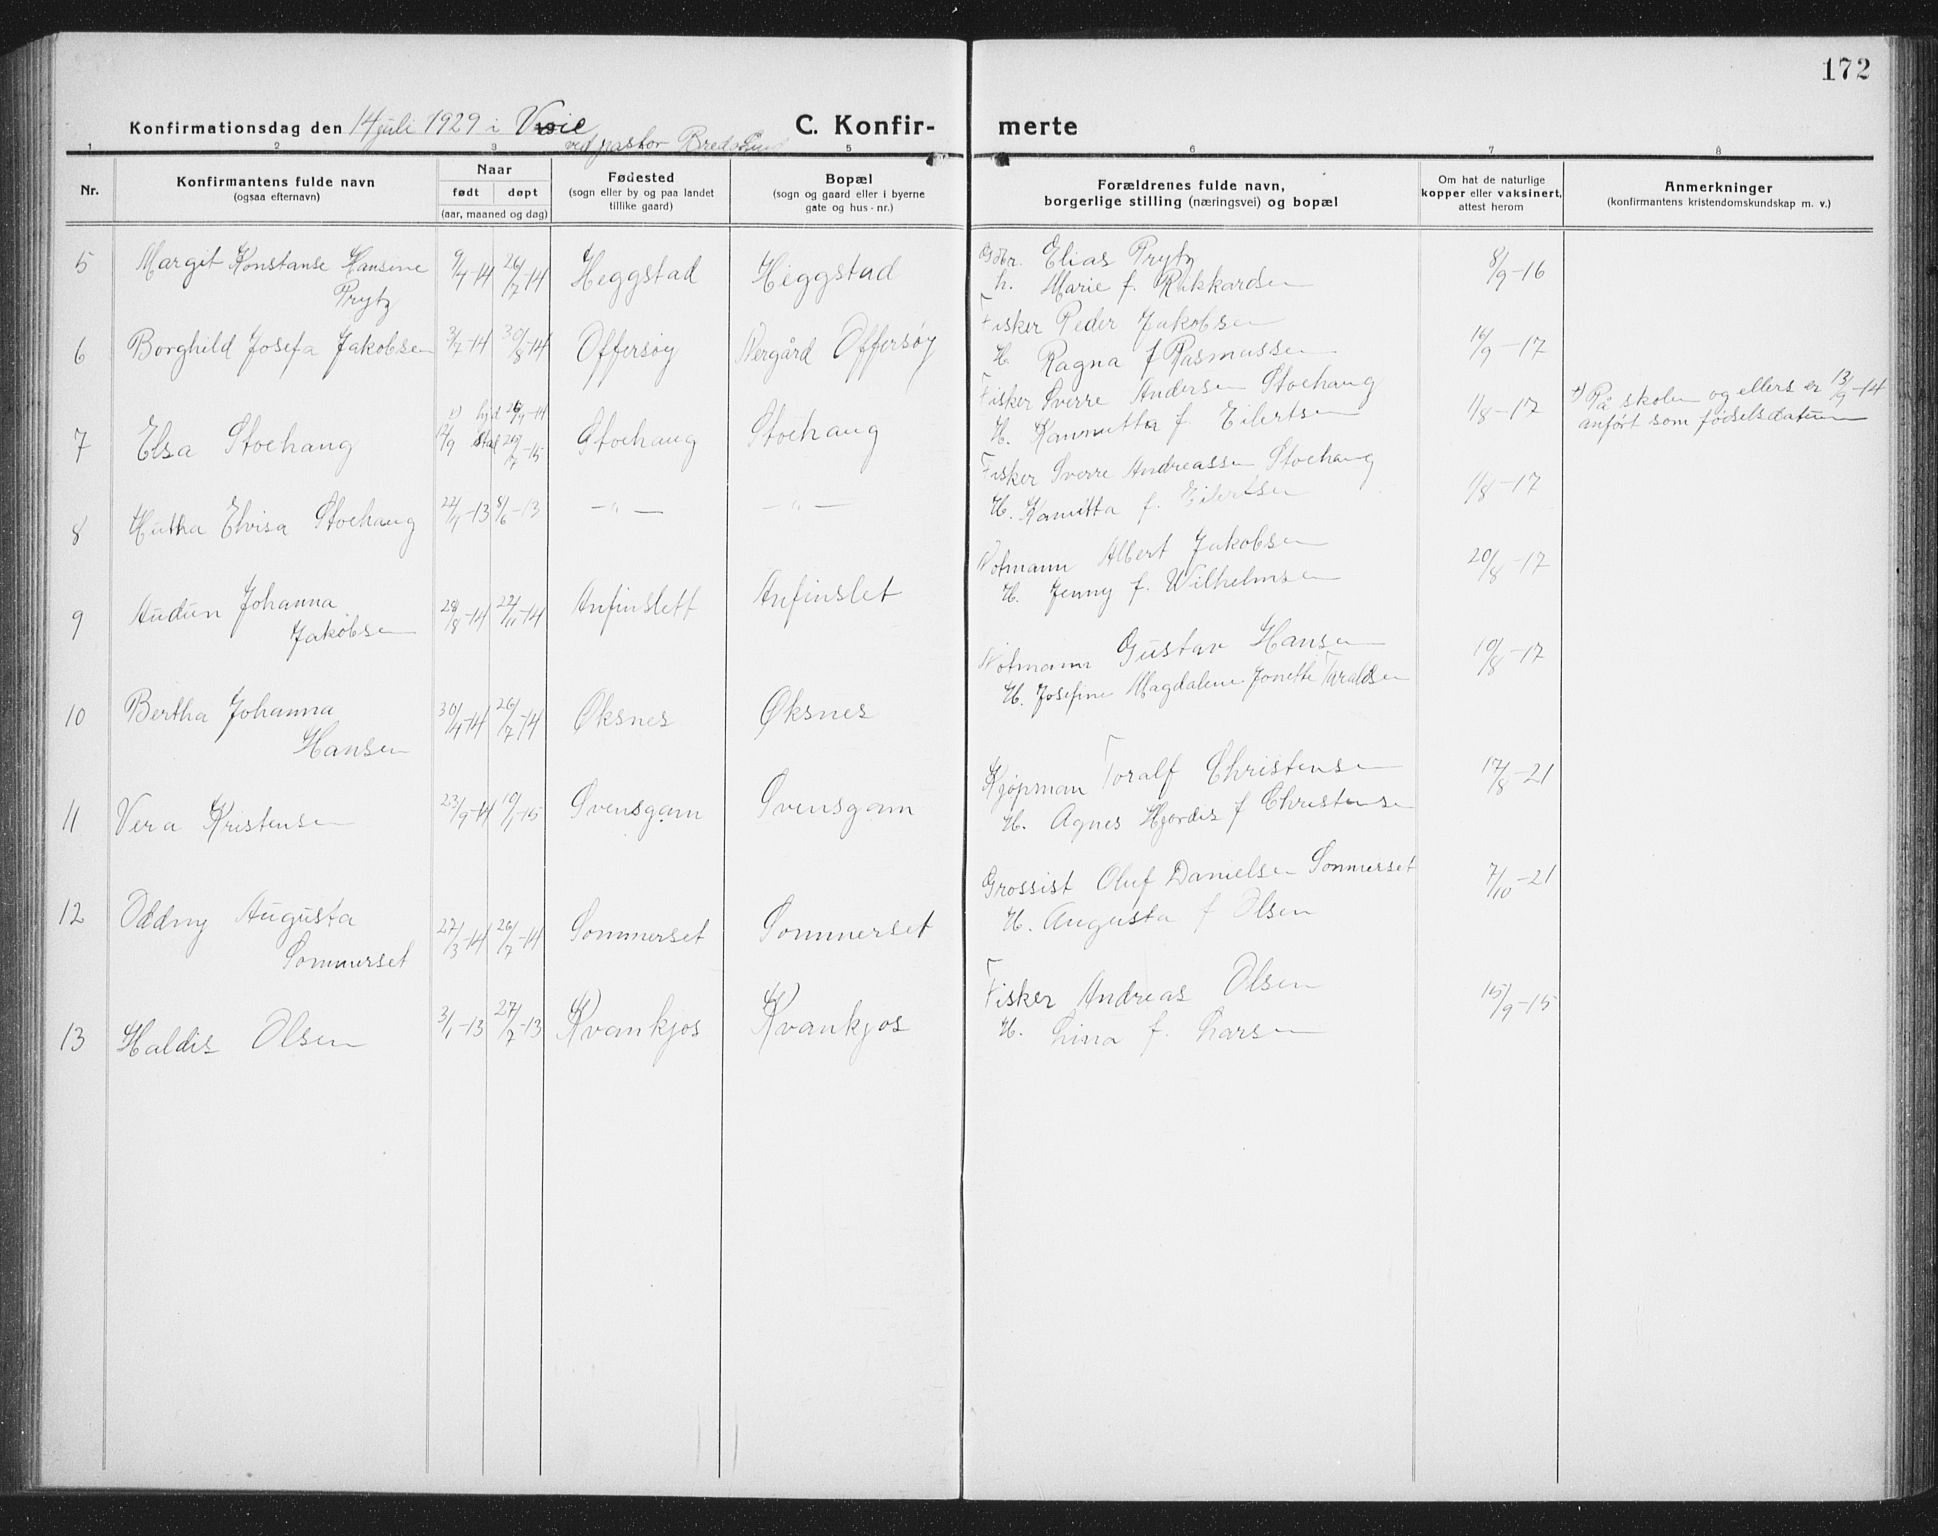 172
Konfirmationsdag den 14 juli 1929 i
C. Konfir- merte
ved pastor
1 2 3 5 6 7 8
Nr.
Konfirmantens fulde navn
(ogsaa efternavn)
Naar
født døpt
(aar, maaned og dag)
Fødested
(sogn eller by og paa landet
tillike gaard)
Bopæl
(sogn og gaard eller i byerne
gate og hus - nr.)
Forældrenes fulde navn,
borgerlige stilling (næringsvei) og bopæl
Om hat de naturlige
kopper eller vaksinert,
attest herom
Anmerkninger
(konfirmantens kristendomskundskap m. v.)
5 Margit Konstanse Hansine 9/4-14 26/7-14 Heggstad Heggstad Gbr. Elias Prytz 8/9-16
Prytz h. Marie f. Rikkardsen
6 Borghild Josefa Jakobsen 3/7-14 30/8-14 Offersøy Nergård Offersøy Fisker Peder Jakobsen 16/9-17
H. Ragna f Rasmussen
7 Elsa Stoehaug 26/7-15 Stoehaug Stoehaug Fisker Sverre Andersen Stoehaug 1/8-17 På skolen og ellers er 13/9-14
H. f. Eilertsen anført som fødselsdatum
8 Elvisa Stoehaug 22/4-13 8/6-13 —„— —„— Fisker Sverre Andreassen Stoehaug 1/8-17
H. Kamitta f. Eilertsen
9 Audun Johanna 28/8-14 22/11-14 Anfinslett Anfinslet Notmann Albert Jakobsen 20/8-17
Jakobsen H. Jenny f. Wilhelmsen
10 Bertha Johanna 30/4-14 26/7-14 Øksnes Øksnes Notmann Gustav Hansen 10/8-17
Hansen H. Josefine Magdalene Jonette Taraldsen
11 Vera Kristensen 23/9-14 10/1-15 Svensgam Svensgam Kjøpman Toralf Christensen 17/8-21
H. Agnes Hjordis f Christensen
12 Oddny Augusta 27/3-14 26/7-14 Sommerset Sommerset Grossist Oluf Danielsen Sommerset 7/10-21
Sommerset H. Augusta f Olsen
13 Haldis Olsen 3/1-13 27/7-13 Kvankjos Kvankjos Fisker Andreas Olsen 15/9-15
H. Lina f. Larsen